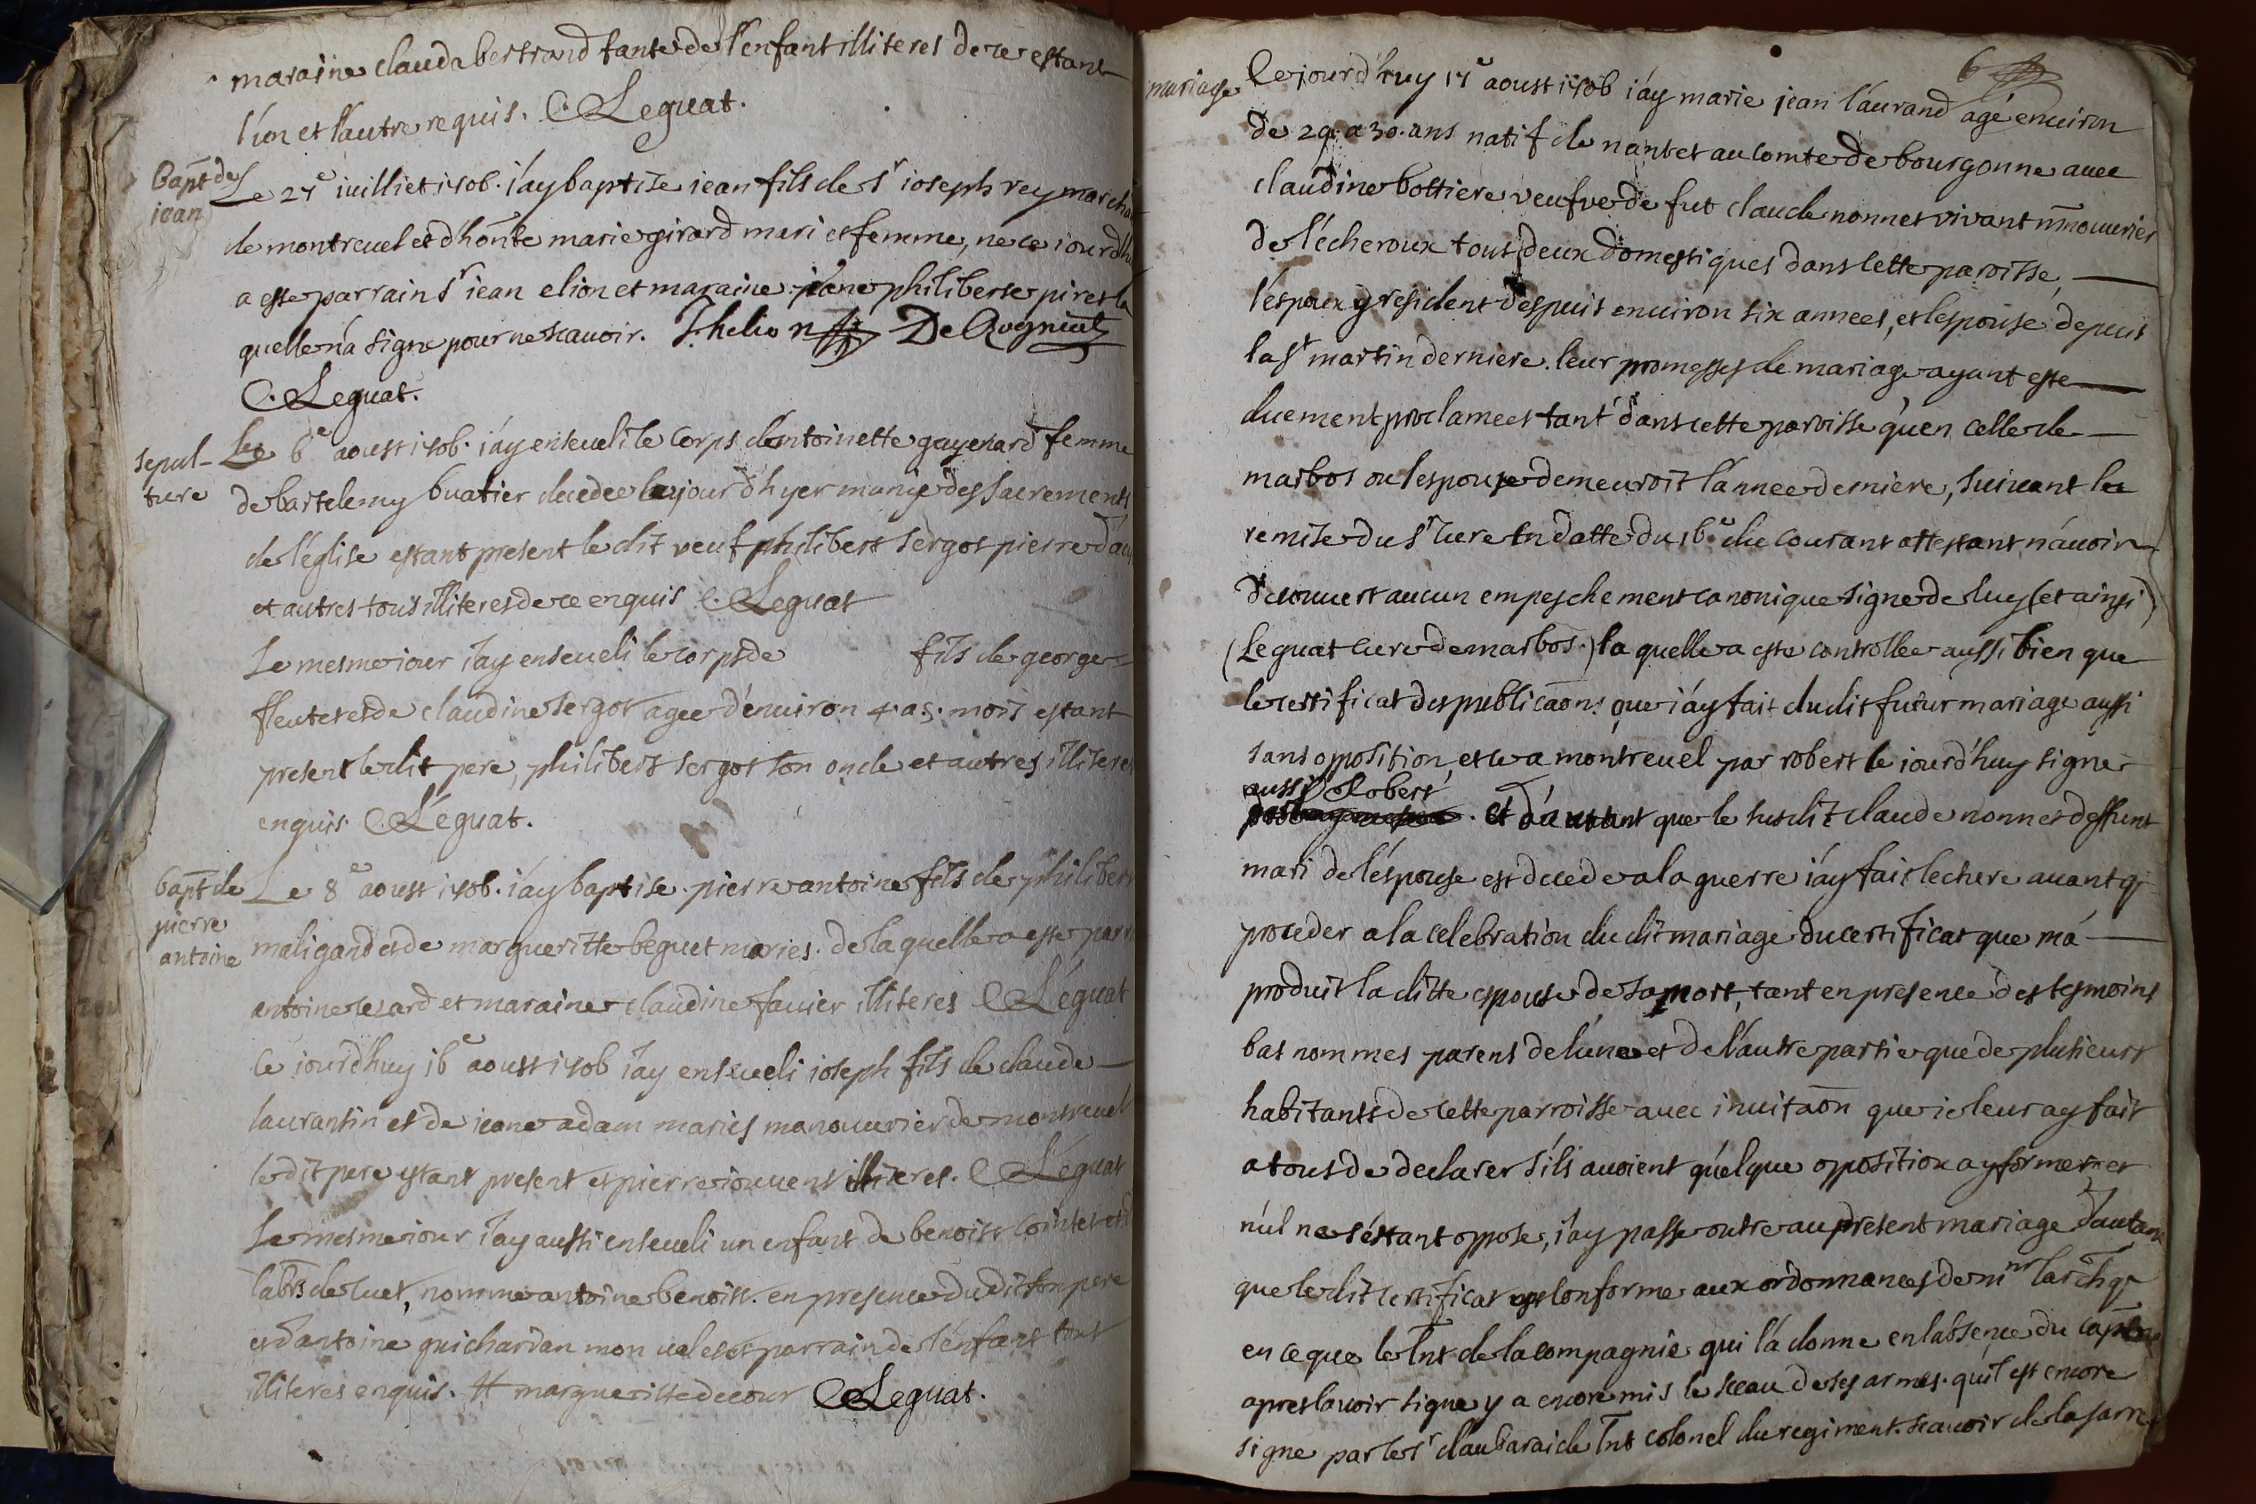 maraine clauda bertrand tante de l'enfant illiteres de ce estant
l'ún et l'autre requis. C. Leguat.
Bapt de jean
Le 27e juilliet 1706. j'ay baptise jean fils de Sr joseph rey marchan
de montreuel et d'honte marie girard mari et femme, ne ce jourd'hu
a este parrain Sr jean elion et maraine jeane philiberte piret la
quelle n'a signe pour ne scauoir. J. helion De
C. Leguat.
sepul-
ture
Le 6e aoust 1706. j'ay enseueli le corps d'antoinette gayenard femme
de bartelemy buatier decedee le jour d'hyer munie des sacrements
de l'église estant present le dit veuf philibert sergot pierre
et autres tous illiteres de ce enquis C. Leguat
Le mesme jour j'ay enseueli le corps de fils de george
fleutet et de claudine sergot agee d'énuiron 4. a 5. mois estant
present le dit pere, philibert sergot son oncle et autres illiteres
enquis. C. Léguat.
bapt de
pierre
antoine
Le 8e aoust 1706. j'ay baptise pierre antoine fils de philibert
maligand et de margueritte beguet maries. de la quelle a este parr
antoine uzard et maraine claudine fauier illiteres C. Léguat
Ce jourd'huy 16e aoust 1706 j'ay enseueli joseph fils de claude
laurantin et de jeane adam maries manouurier de montreuel
le dit pere estant present et pierre jouuent illiteres. C. Léguat
Le mesme jour j'ay aussi enseueli un enfant de benoist cointet et d
labrs de luet, nomme antoine benoist. en presence du dit son pere
et d'antoine guichardan mon valet et parrain de l'énfant tous
illiteres enquis. # margueritte decour C. Leguat.
6
mariage
Ce jourd'huy 17e aoust 1706 j'áy marie jean l'áurand agé énuiron
de 29. a 30. ans natif de nantet au comte de bourgonne auec
claudine bottiere veufve de fut claude nonnet vivant mnouurier
de l'écheroux tous deux domestiques dans cette paroisse,
l'espoux y resident d'espuis enuiron six annees, et l'espouse depuis
la St martin derniere. leur promesses de mariage ayant este
duement proclamees tant dans cette paroisse qu'en celle de
marbos ou l'espouse demeuroit l'ánnee derniere, suiuant la
remise du Sr cure en datte du 16e du courant attestant n'áuoir
d'ecouuert aucun empeschement canonique signe de luy (et ainsi)
(Leguat cure de marbos.) la quelle a este controllee aussi bien que
le certificat des publicaons que j'áy fait du dit futur mariage aussi
sans opposition, et ce a montreuel par robert le jourd'huy signe
aussi Robert
et d'autant que le susdit claude nonnet deffunt
mari de l'éspouse est decede a la guerre j'áy fait lecture auant q
proceder a la celebration du dit mariage du certificat que m'á
produit la ditte espouse de sa mort, tant en presence des tesmoins
bas nommes parens de l'úne et de l'áutre partie que de plusieurs
habitants de cette parroisse auec inuitaon que je leur ay fait
a tous de declarer s'ils auoient quélque opposition a y former et
núl ne s'éstant oppose, j'ay passe outre au present mariage d'autant
que le dit certificat est conforme aux ordonnances de mgr l'archq
en ce que le Lnt de la compagnie qui l'á donne en l'absence du capne
apres l'auoir signe y a encore mis le sceau de ses armes. qu'il est encore
signe par le Sr d'aubaraide Lnt colonel du regiment. scauoir de la sarre